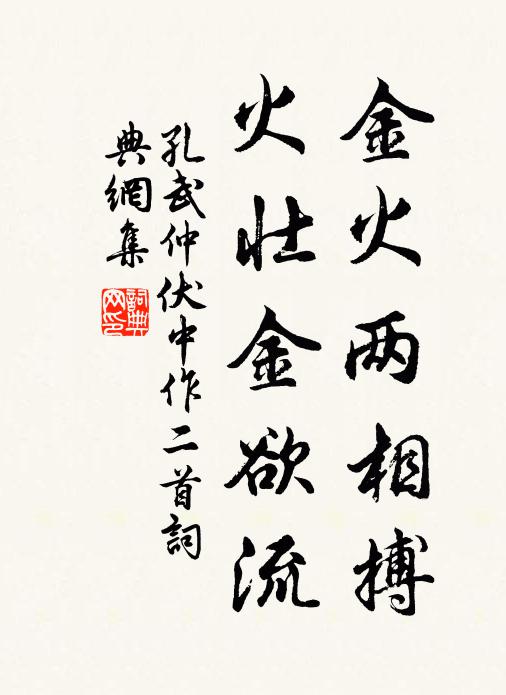 金火两相搏
火壮金欲流
孔武仲伏中作二首詞
典網集
詞典
网印